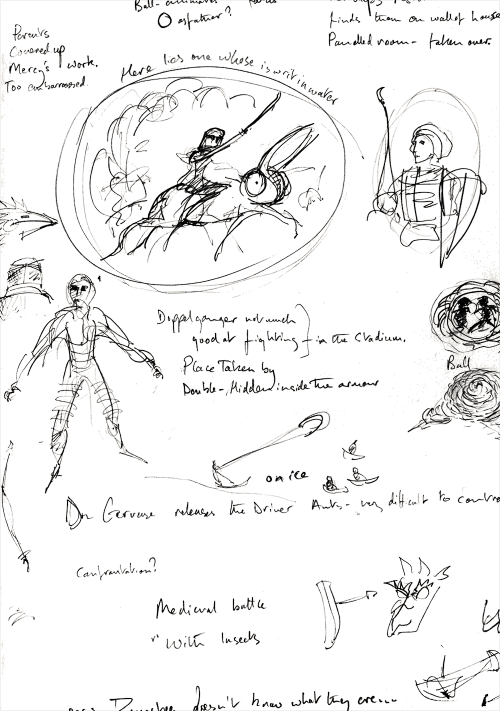 Ball-
O as father?
finds them on wall of house
Panelled room - taken over
Parents
Covered up
Mercy's work.
Too embarrassed.
Here lies one whose is writ in water
Doppelganger not much
good at fighting } in the Stadium.
Place Taken by
Double-, Hidden inside the armour
Ball
on ice
Dr Gervase releases the Driver Ants - very difficult to contro
Confrontation?
Medieval battle
" With Insects
doesn't know what they are...